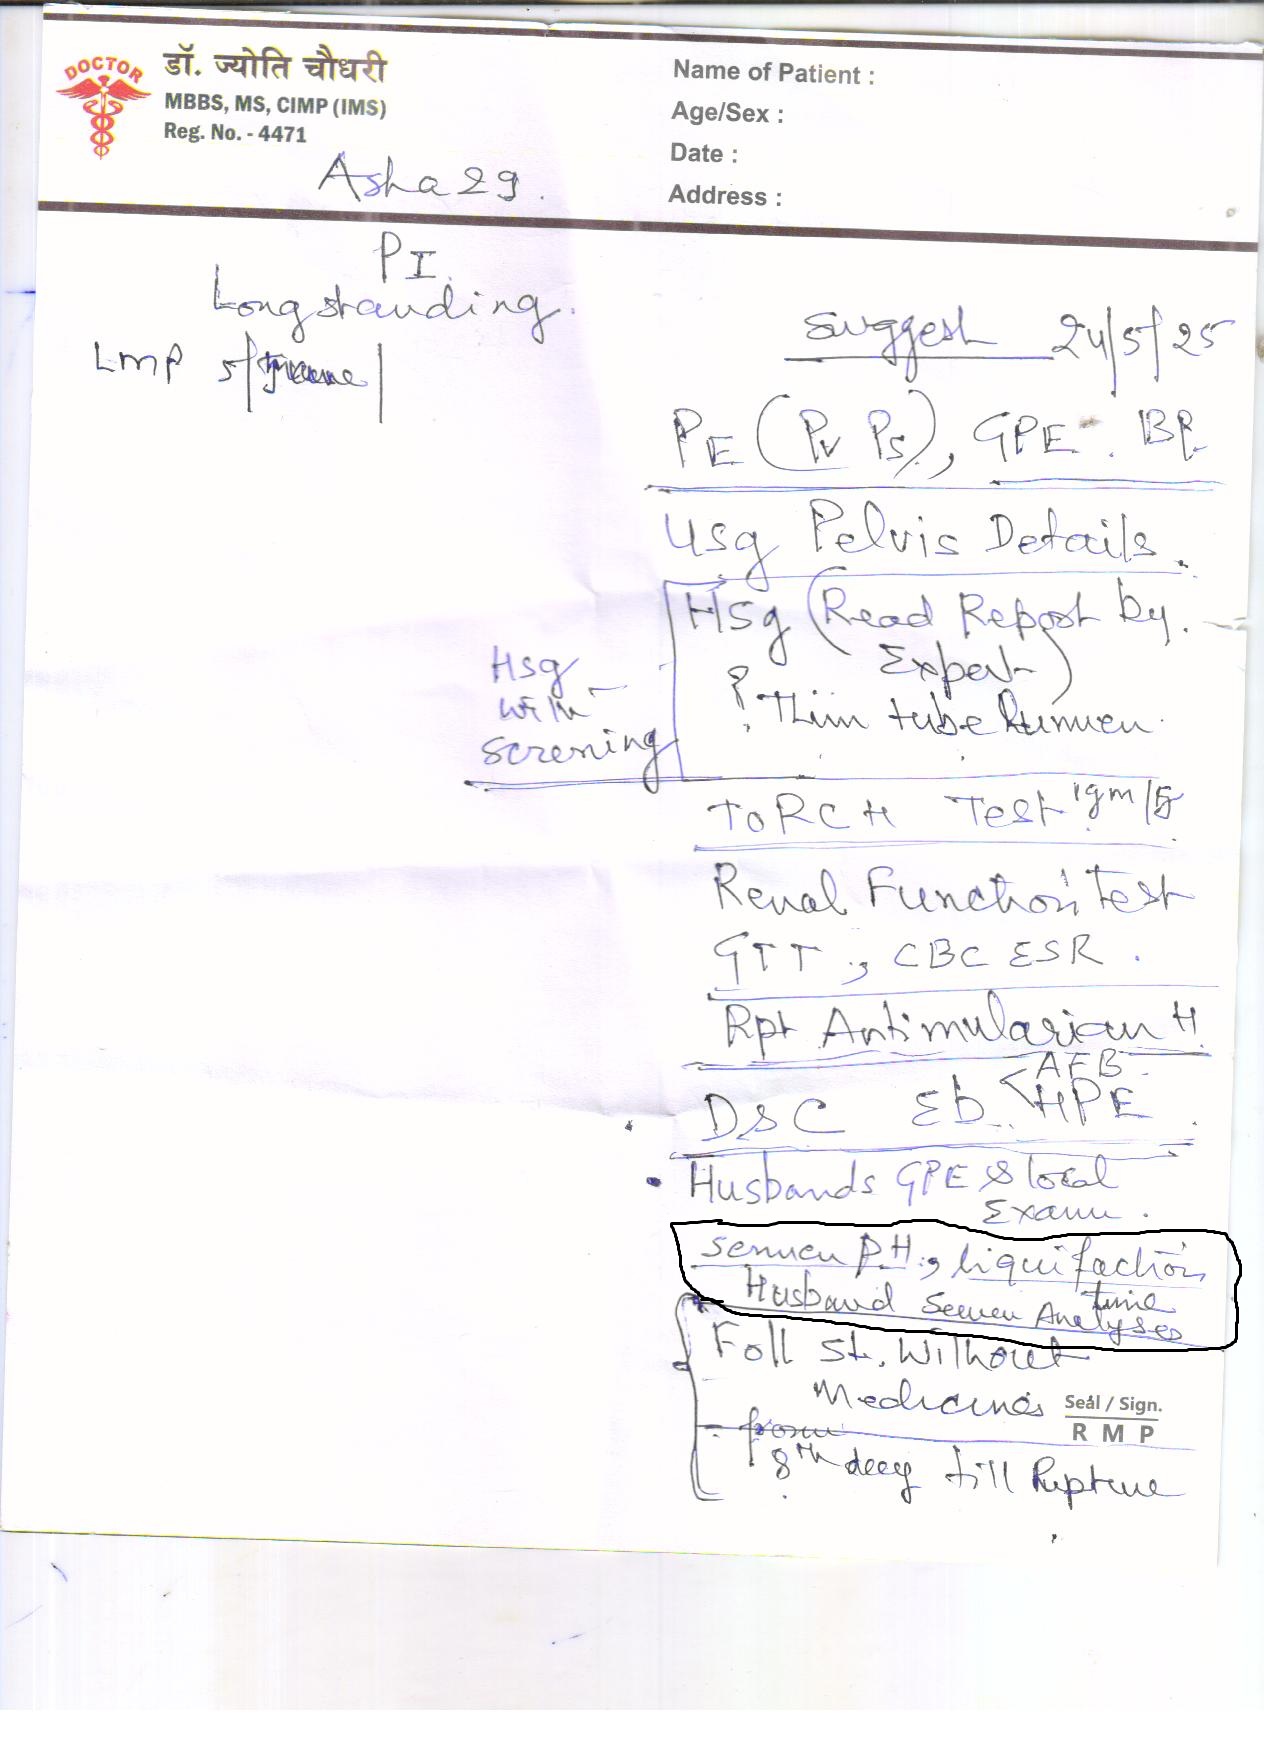 DOCTOR
डॉ. ज्योति चौधरी
MBBS, MS, CIMP (IMS)
Reg. No. - 4471
Name of Patient :
Age/Sex :
Date :
Address :
Asha 29.
PI.
Longstanding.
LMP 5/
Suggest 24/5/25
PE (Pv Ps), GPE. BP.
Usg Pelvis Details.
Hsg (Read Report by.
Expert)
? Thin tube lumen.
Hsg
with
Screning
ToRCH Test Igm/g
Renal Function Test
GTT, CBC ESR.
Rpt Antimularian H
D&C Eb < AFB
HPE
Husbands GPE & local
Exam.
Semen PH, liquifaction
time
Husband Semen Analyses
Foll St. Without
Medicines
Seal / Sign.
R M P
from
8th day till Rupture